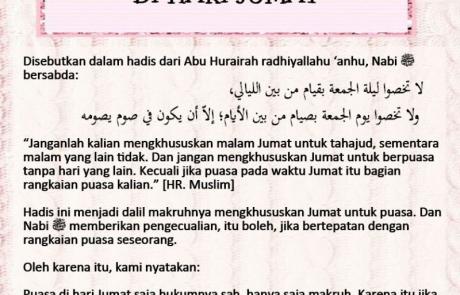 DI HARI JUM'AT
Disebutkan dalam hadis dari Abu Hurairah radhiyallahu ‘anhu, Nabi ﷺ
bersabda:
لا تخصوا ليلة الجمعة بقيام من بين الليالي،
ولا تخصوا يوم الجمعة بصيام من بين الأيام؛ إلاّ أن يكون في صوم يصومه
“Janganlah kalian mengkhususkan malam Jumat untuk tahajud, sementara
malam yang lain tidak. Dan jangan mengkhususkan Jumat untuk berpuasa
tanpa hari yang lain. Kecuali jika puasa pada waktu Jumat itu bagian
rangkaian puasa kalian.” [HR. Muslim]
Hadis ini menjadi dalil makruhnya mengkhususkan Jumat untuk puasa. Dan
Nabi ﷺ memberikan pengecualian, itu boleh, jika bertepatan dengan
rangkaian puasa seseorang.
Oleh karena itu, kami nyatakan:
Puasa di hari Jumat saja hukumnya sah, hanya saja makruh. Karena itu jika